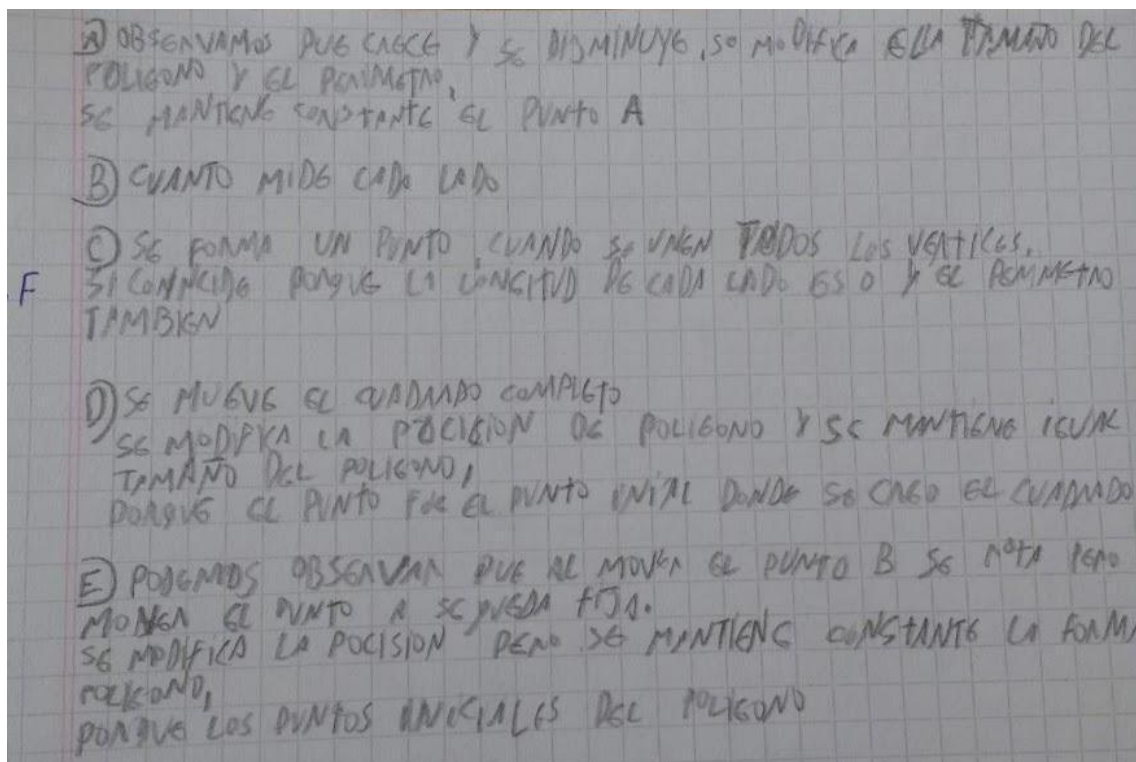 A) OBSERVAMOS QUE CRECE Y SE DISMINUYE, SE MODIFICA EL TAMAÑO DEL
POLIGONO Y EL PERIMETRO,
SE MANTIENE CONSTANTE EL PUNTO A
B) CUANTO MIDE CADA LADO
C) SE FORMA UN PUNTO, CUANDO SE UNEN TODOS LOS VERTICES.
F SI CONINCIDE PORQUE LA LONGITUD DE CADA LADO ES 0 Y EL PERIMETRO
TAMBIEN
D) SE MUEVE EL CUADRADO COMPLETO
SE MODIFICA LA POCICION DE POLIGONO Y SE MANTIENE IGUAL
TAMAÑO DEL POLIGONO,
PORQUE EL PUNTO FUE EL PUNTO INIAL DONDE SE CREO EL CUADRADO
E) PODEMOS OBSERVAR QUE AL MOVER EL PUNTO B SE ROTA PERO
MOVER EL PUNTO A SE QUEDA FIJA.
SE MODIFICA LA POCISION PERO SE MANTIENE CONSTANTE LA FORMA
POLIGONO,
PORQUE LOS PUNTOS INICIALES DEL POLIGONO